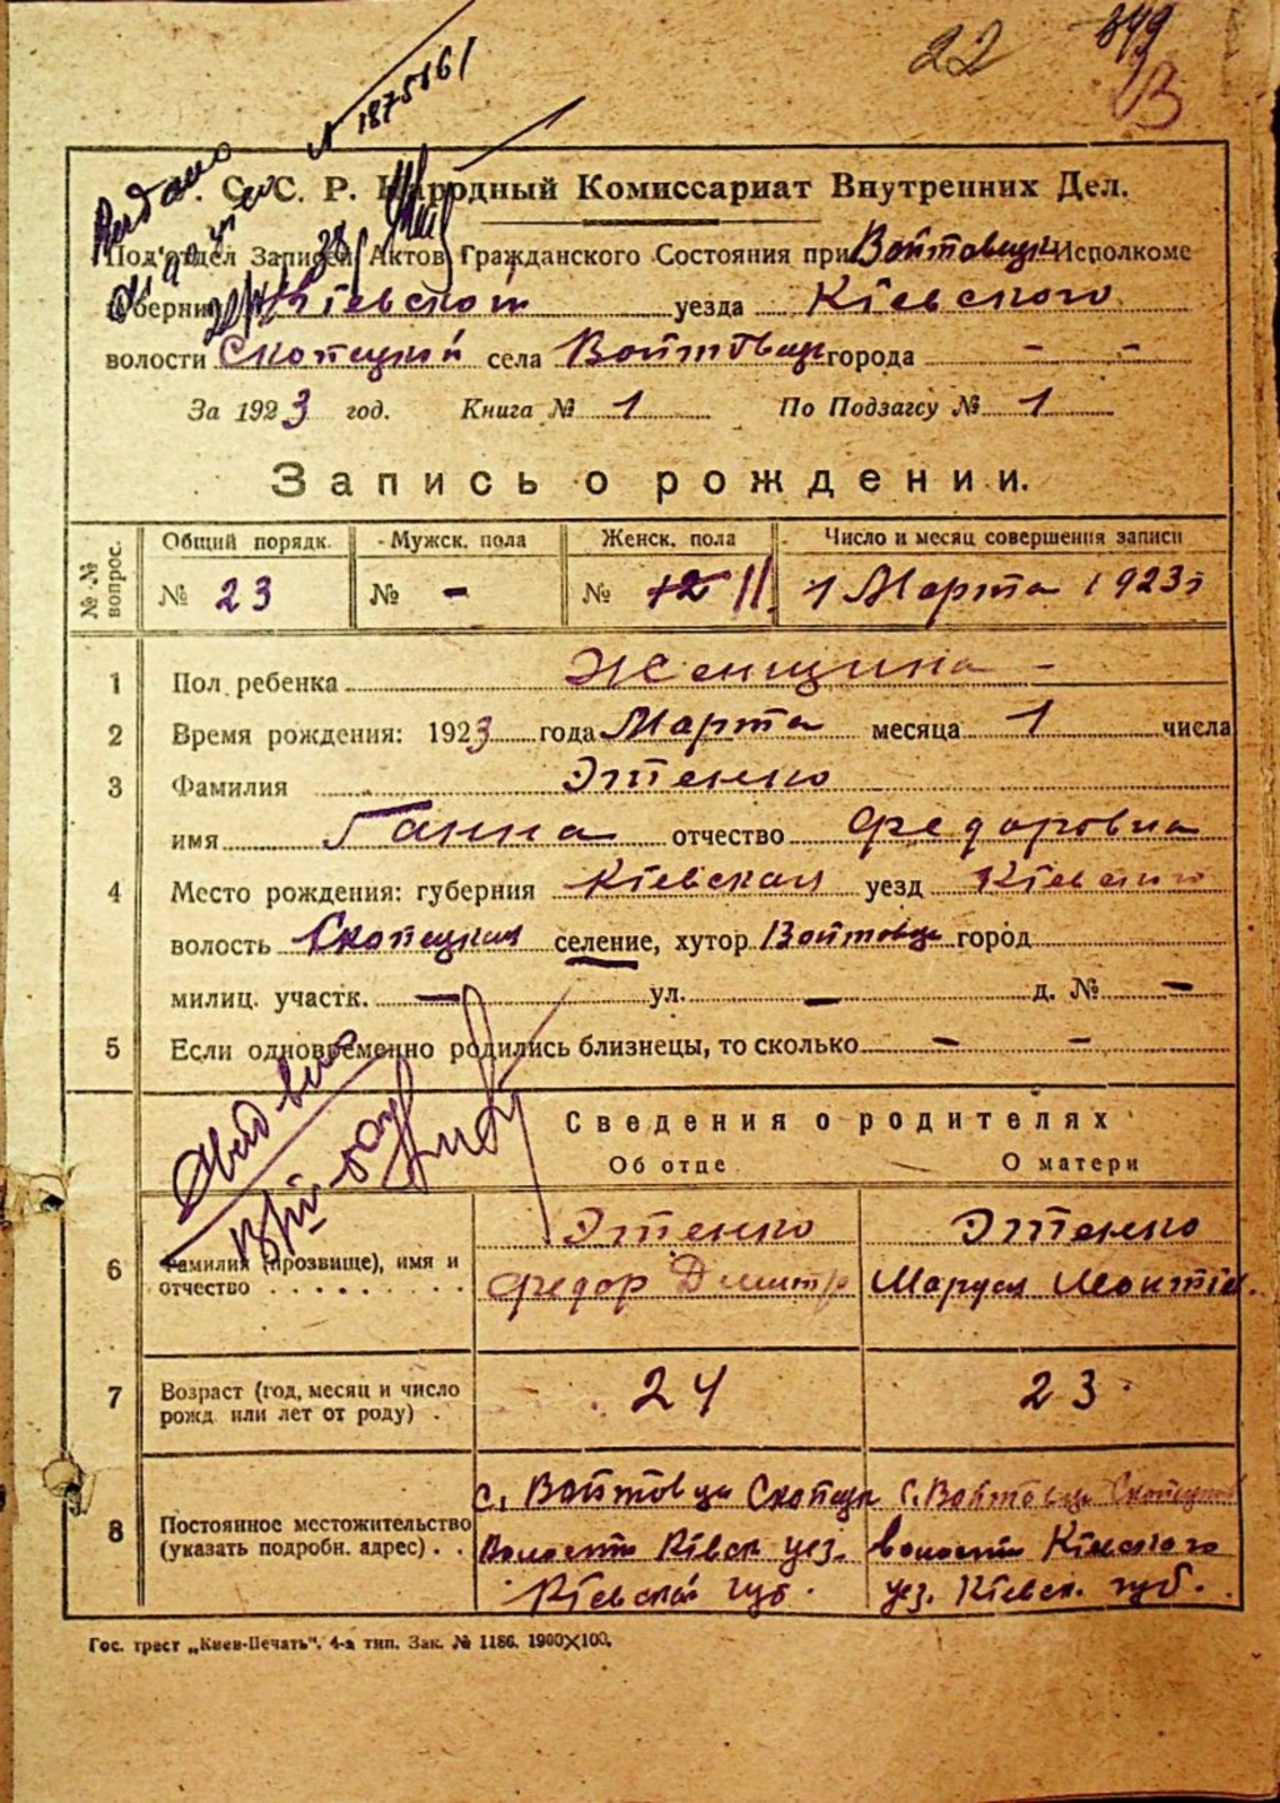 22 849
В
Выдано
№ 1875161
. С. С. Р. Народный Комиссариат Внутренних Дел.
Под'отдел Записей Актов Гражданского Состояния при Войтовецк Исполкоме
Губернии Кіевской уезда Кіевского
волости Скопецкой села Войтовец города - -
За 1923 год. Книга № 1 По Подзагсу № 1
Запись о рождении.
№ № вопрос.
Общий порядк. Мужск. пола Женск. пола Число и месяц совершения записи
№ 23 № - № 12 11. 1 Марта 1923 г
1 Пол ребенка Женщина -
2 Время рождения: 1923 года Марта месяца 1 числа
3 Фамилия Этенко
имя Ганна отчество Федоровна
4 Место рождения: губерния Кіевская уезд Кіевский
волость Скопецкая селение, хутор Войтовцы город
милиц. участк. — ул. — д. № —
5 Если одновременно родились близнецы, то сколько - -
Сведения о родителях
Об отце О матери
6 Фамилия (прозвище), имя и отчество
Этенко Этенко
Федор Дмитр Маруся Леонтіе.
7 Возраст (год, месяц и число рожд. или лет от роду) . 24 23
8 Постоянное местожительство (указать подробн. адрес) . .
с. Войтовцы Скопецк с. Войтовцы Скопецкой
Волости Кіевск уез. волости Кіевского
Кіевской губ. уез. Кіевск. губ.
Гос. трест „Киев-Печать". 4-а тип. Зак. № 1186. 1900×100.